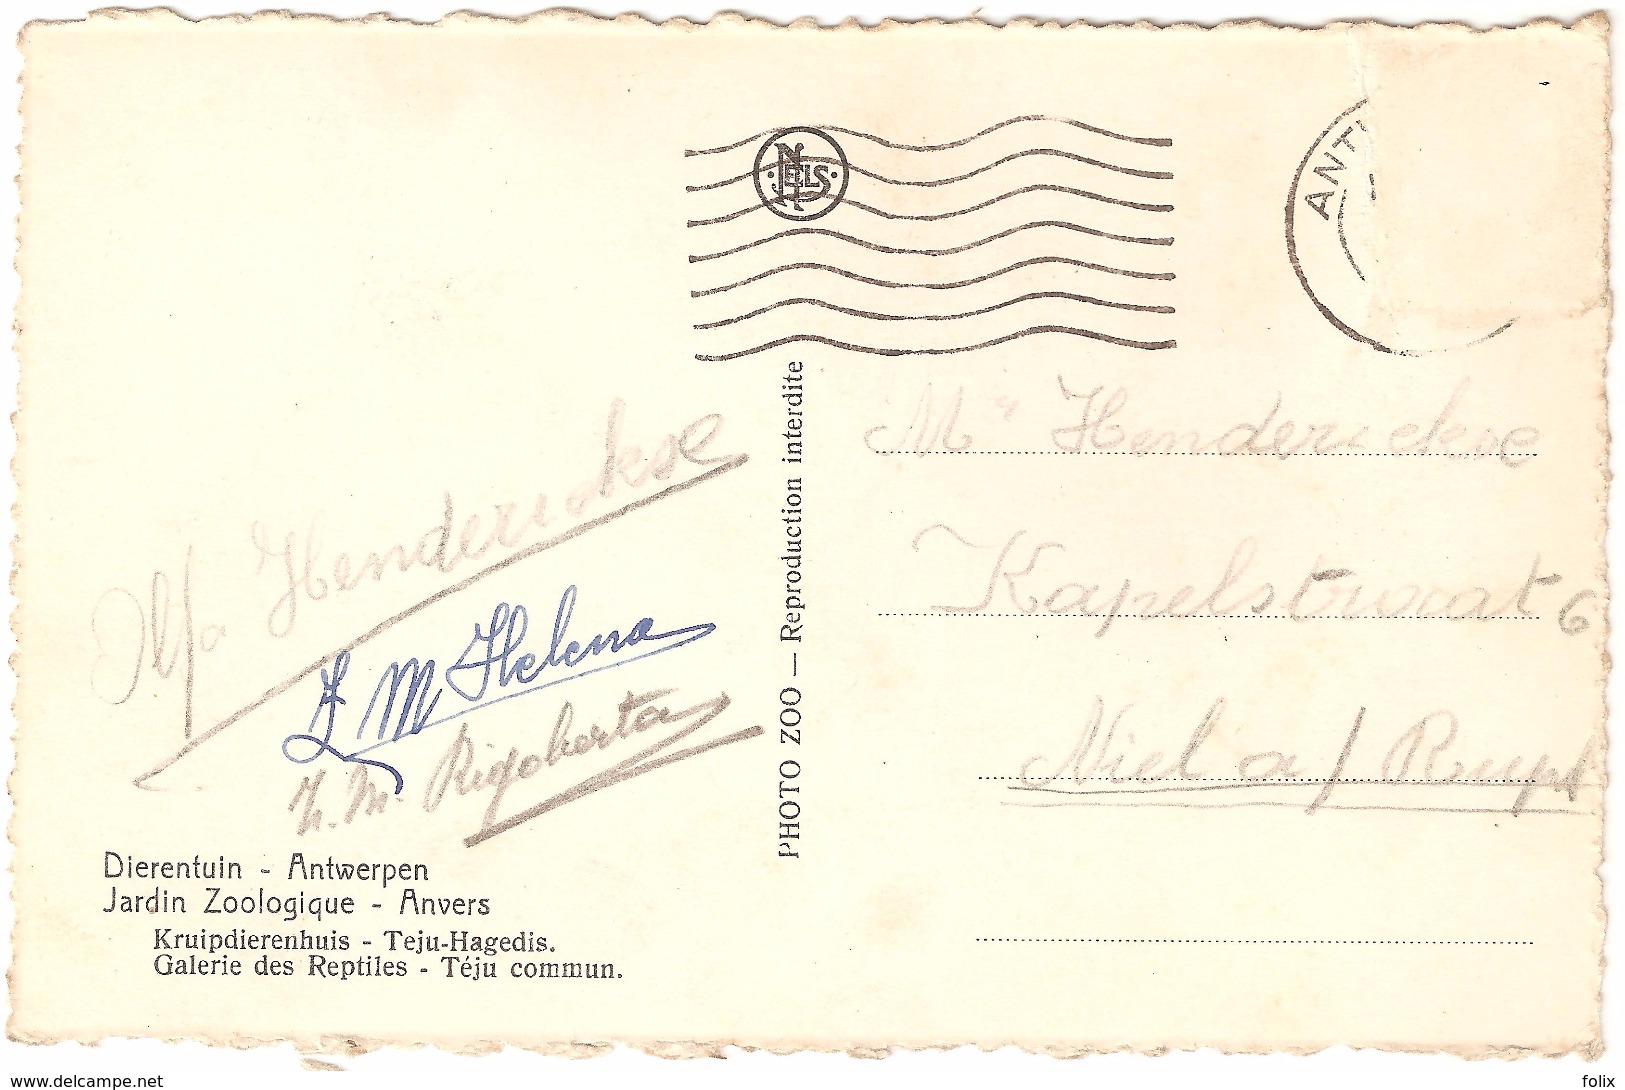 NELS
ANT
Ma Hendericksе
Z M Helena
Z. M. Rigoberta
Dierentuin - Antwerpen
Jardin Zoologique - Anvers
Kruipdierenhuis - Teju-Hagedis.
Galerie des Reptiles - Téju commun.
PHOTO ZOO — Reproduction interdite
Mr Henderickse
Kapelstraat 6
Niel a/ Rupel
www.delcampe.net
folix